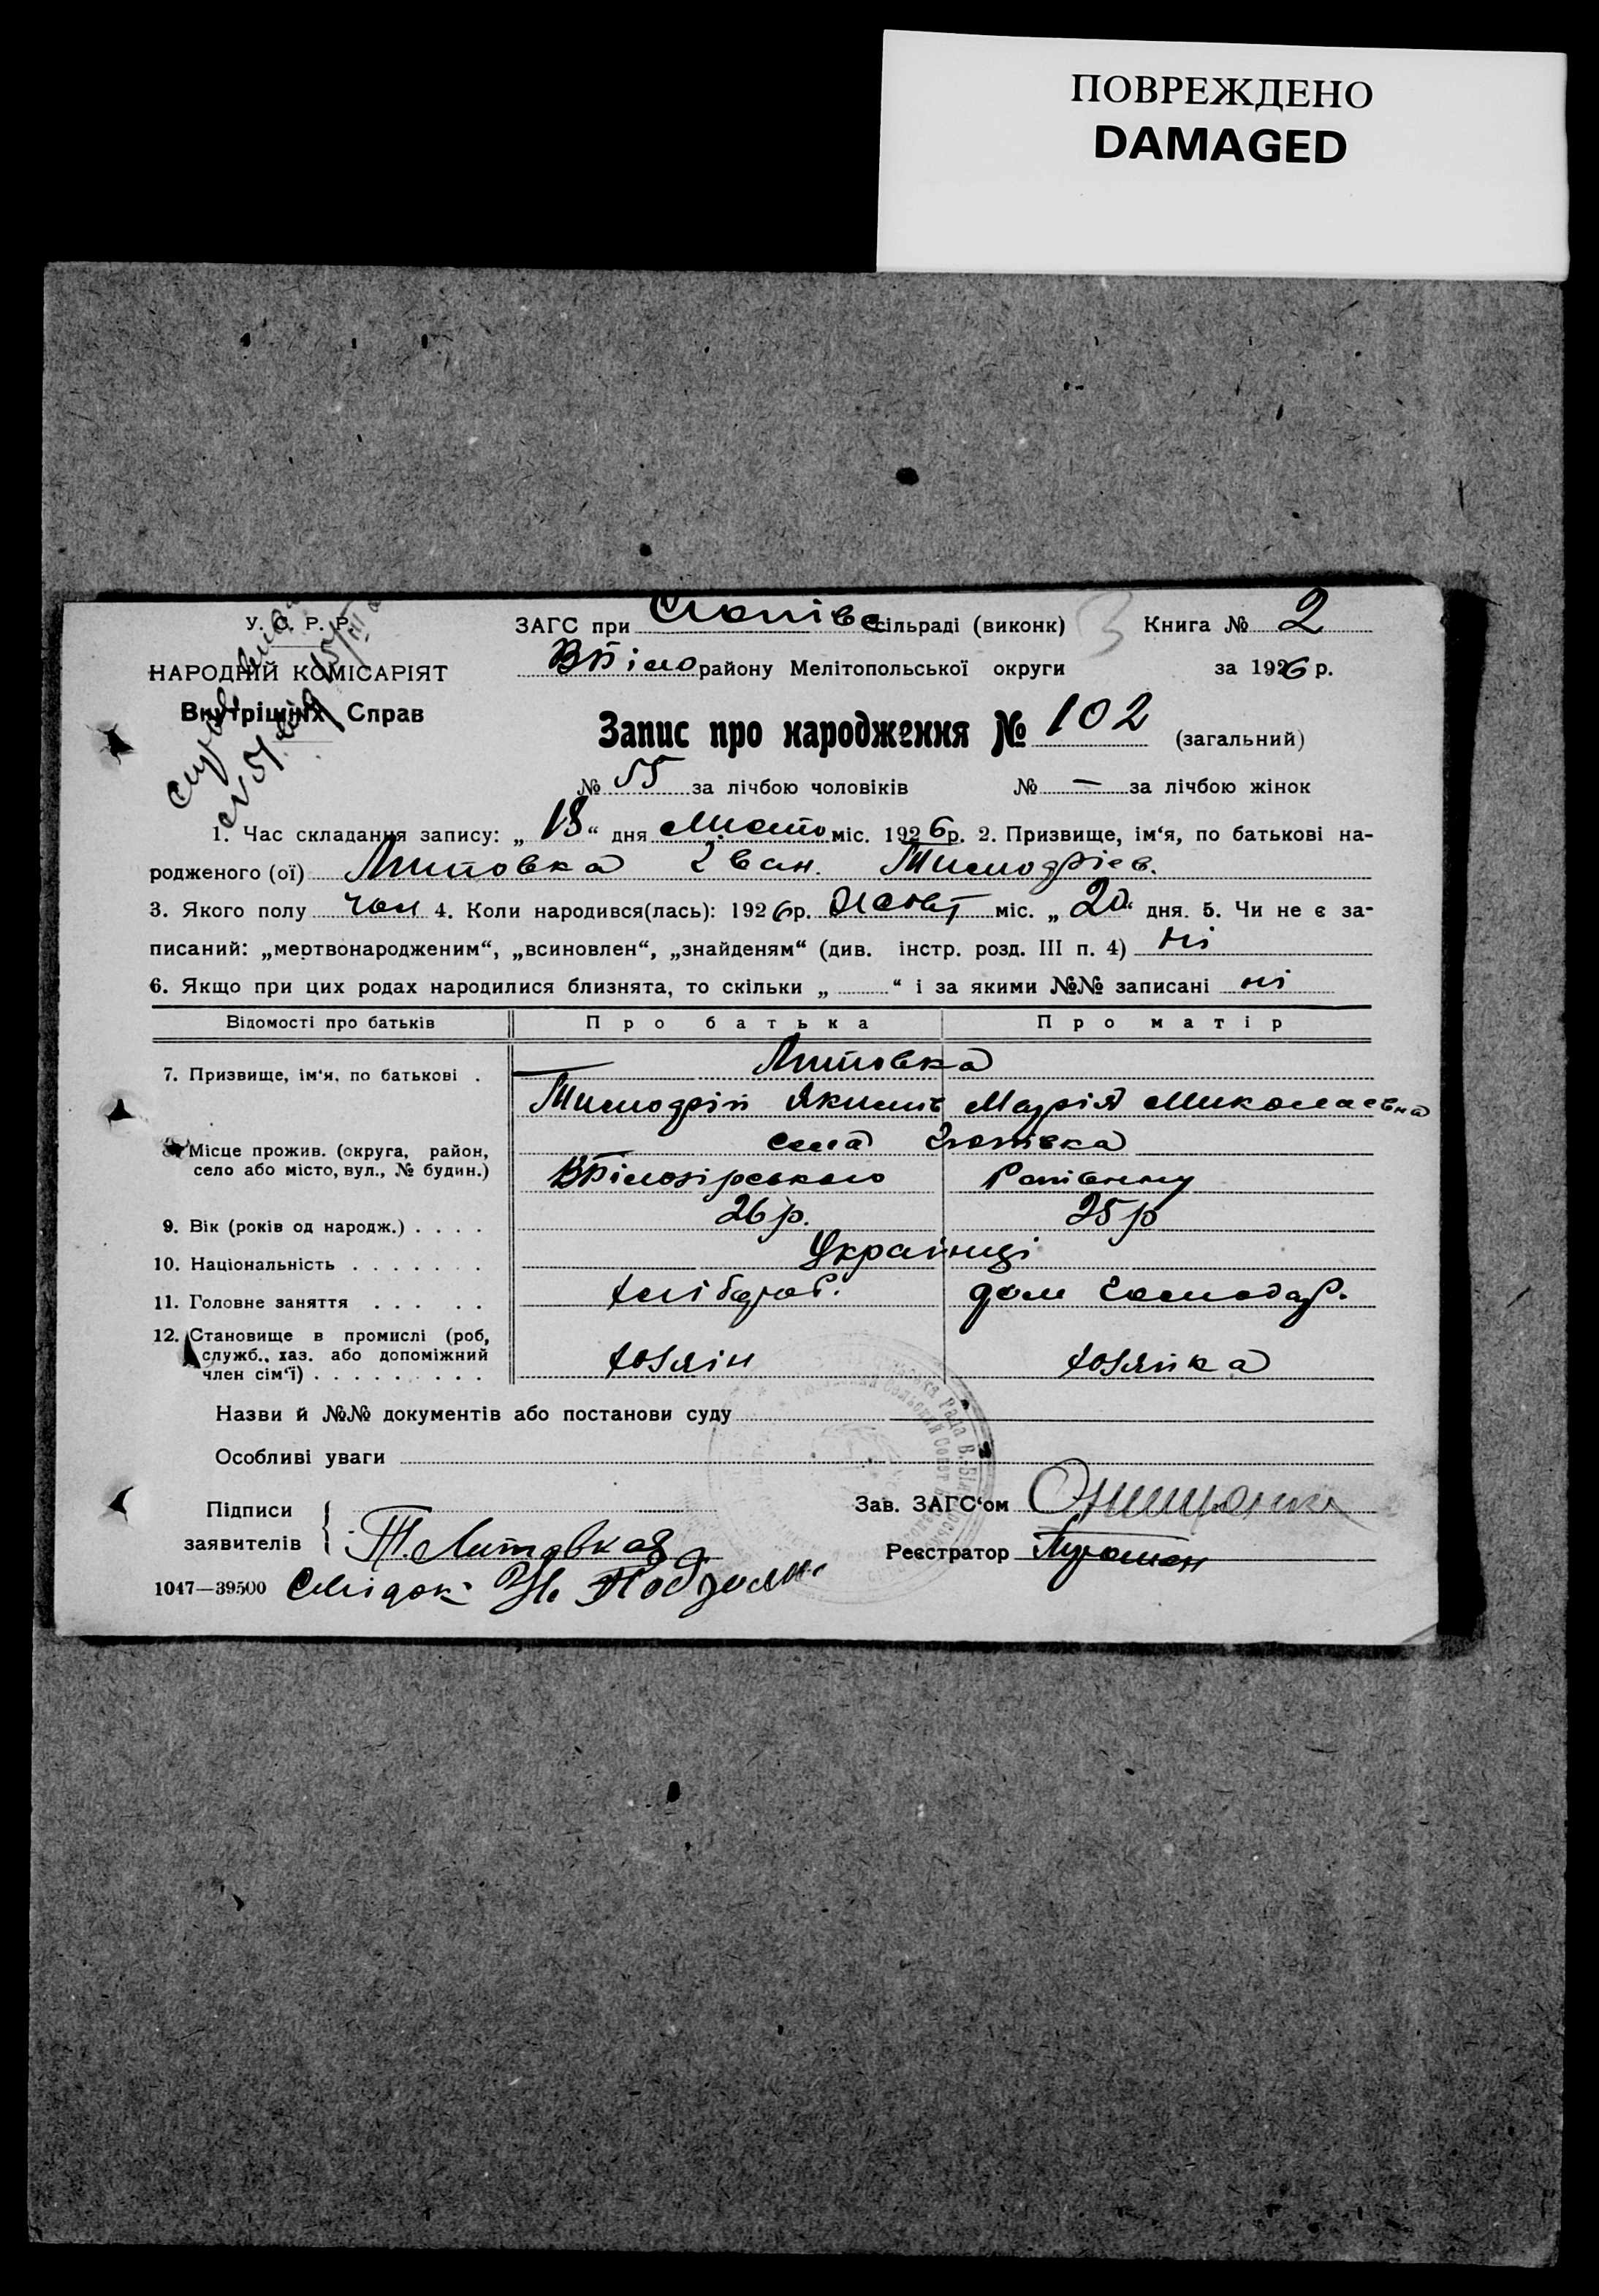 ПОВРЕЖДЕНО
DAMAGED
У. С. Р. Р.
НАРОДНІЙ КОМІСАРІЯТ
Внутрішніх Справ
ЗАГС при сільраді (виконк)
ВБіло району Мелітопольської округи
Книга № 2
за 1926 р.
Запис про народження № 102 (загальний)
№ 55 за лічбою чоловіків № — за лічбою жінок
1. Час складання запису: „18“ дня міс. 1926 р. 2. Призвище, ім‘я, по батькові на-
родженого (ої) Литовка Іван. Тимофієв.
3. Якого полу чол 4. Коли народився(лась): 1926 р. Жовт міс. „20“ дня. 5. Чи не є за-
писаний: „мертвонародженим“, „всиновлен“, „знайденям“ (див. інстр. розд. III п. 4) ні
6. Якщо при цих родах народилися близнята, то скільки „ “ і за якими №№ записані ні
Відомості про батьків Про батька Про матір
7. Призвище, ім‘я, по батькові . Литовка
Тимофій Якимів Марія Миколаєвна
8. Місце прожив. (округа, район, села
село або місто, вул., № будин.) ВБілозірського Раπйону
9. Вік (років од народж.) . . . . 26 р. 25 р
10. Національність . . . . . . . Українці
11. Головне заняття . . . . . хлібороб. дом господар.
12. Становище в промислі (роб,
служб., хаз. або допоміжний
член сім‘ї) . . . . . . . . . хозяін хозяйка
Назви й №№ документів або постанови суду
Особливі уваги
Підписи
заявителів Т. Литовка
Зав. ЗАГС‘ом
Реєстратор
1047—39500 Свідок: